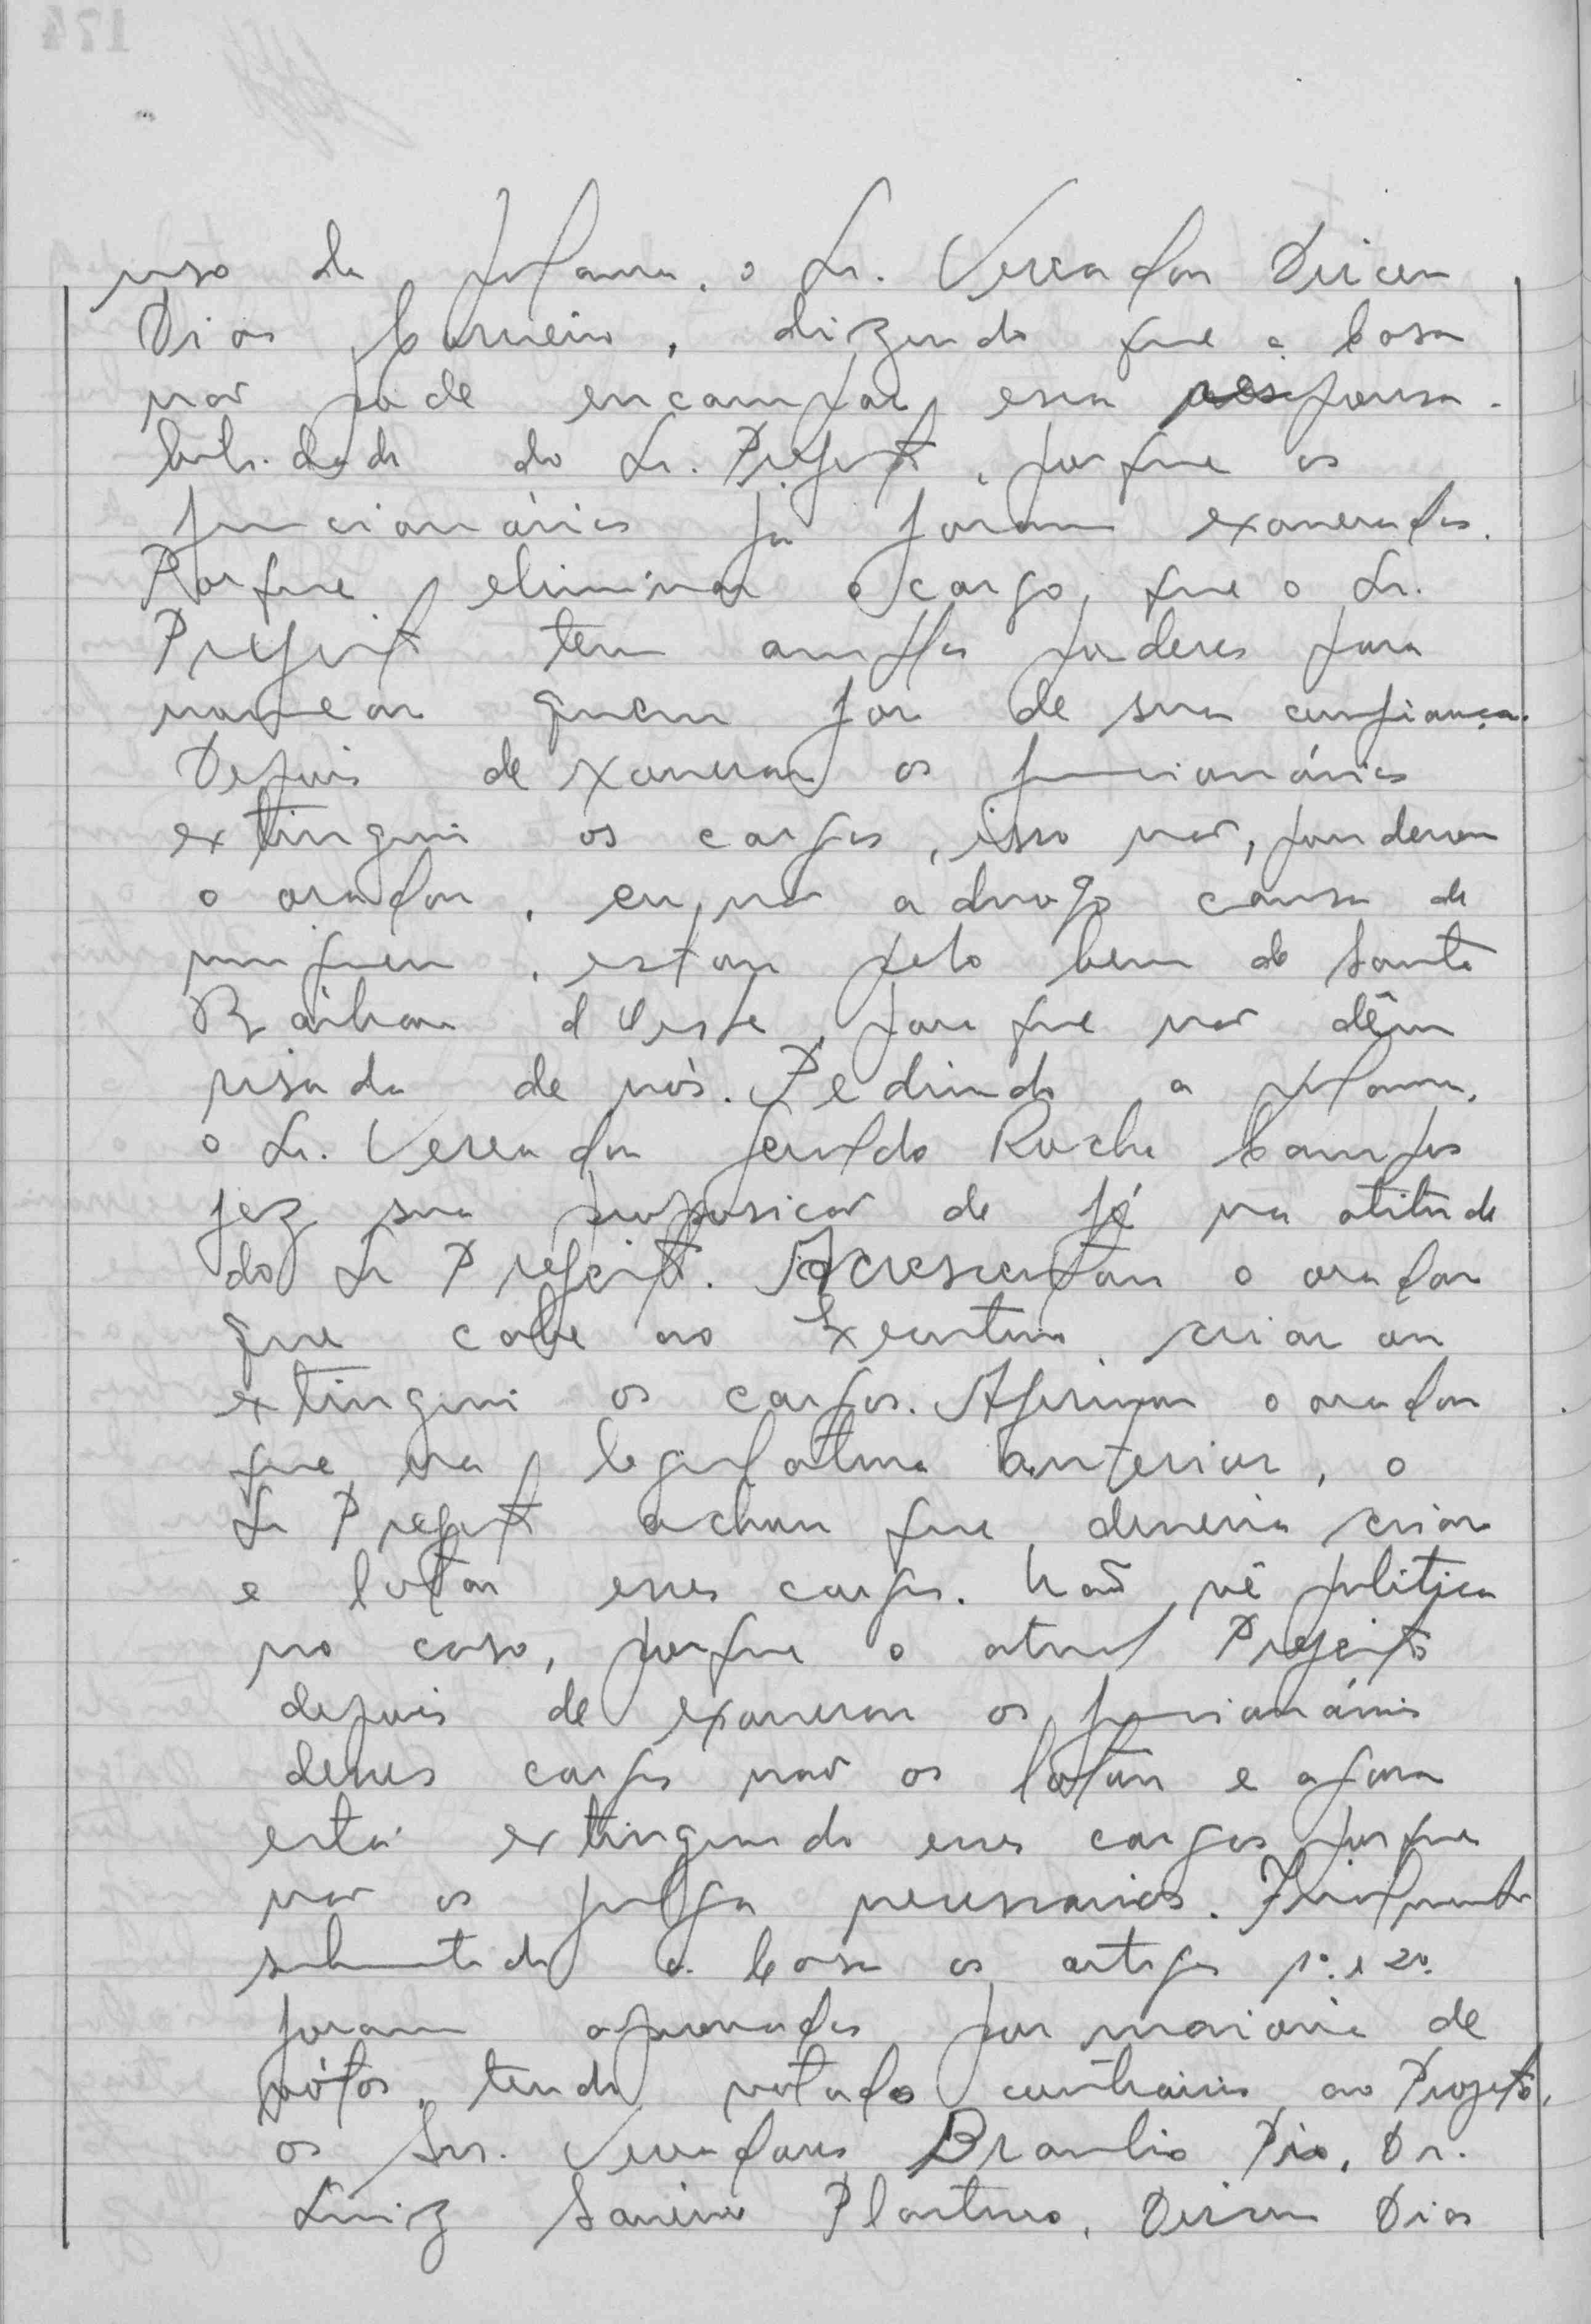 uso da palavra, o Sr. Vereador Dirceu
Dias Carneiro, dizendo que a Casa
não pode encampar essa responsa-
bilidade do Sr. Prefeito, porque os
funcionários já foram exonerados.
Porque eliminar o cargo, que o Sr.
Prefeito tem amplos poderes para
nomear quem for de sua confiança.
Depois de exonerar os funcionários
extinguir os cargos, isso não, ponderou
o orador, eu não advogo causa de
ninguem, estou pelo bem de Santa
Bárbara d'Oeste, para que não dêm
risada de nós. Pedindo a palavra,
o Sr. Vereador Geraldo Rocha Campos
fez sua proposicão de fé na atitude
do Sr Prefeito. Acrescentou o orador
que cabe ao Executivo criar ou
extinguir os cargos. Afirmou o orador
que na legislatura anterior, o
Sr Prefeito achou que deveria criar
e lotar esses cargos. Não vê politica
no caso, porque o atual Prefeito
depois de exonerar os funcionários
desses cargos não os lotou e agora
está extinguindo esses cargos porque
não os julga necessarios. Finalmente
submetido a Casa os artigos 1º. e 2º.
foram aprovados por maioria de
vótos, tendo votados contrários ao Projeto,
os Srs. Vereadores Braulio Pio, Dr.
Luiz Dirceu Dias